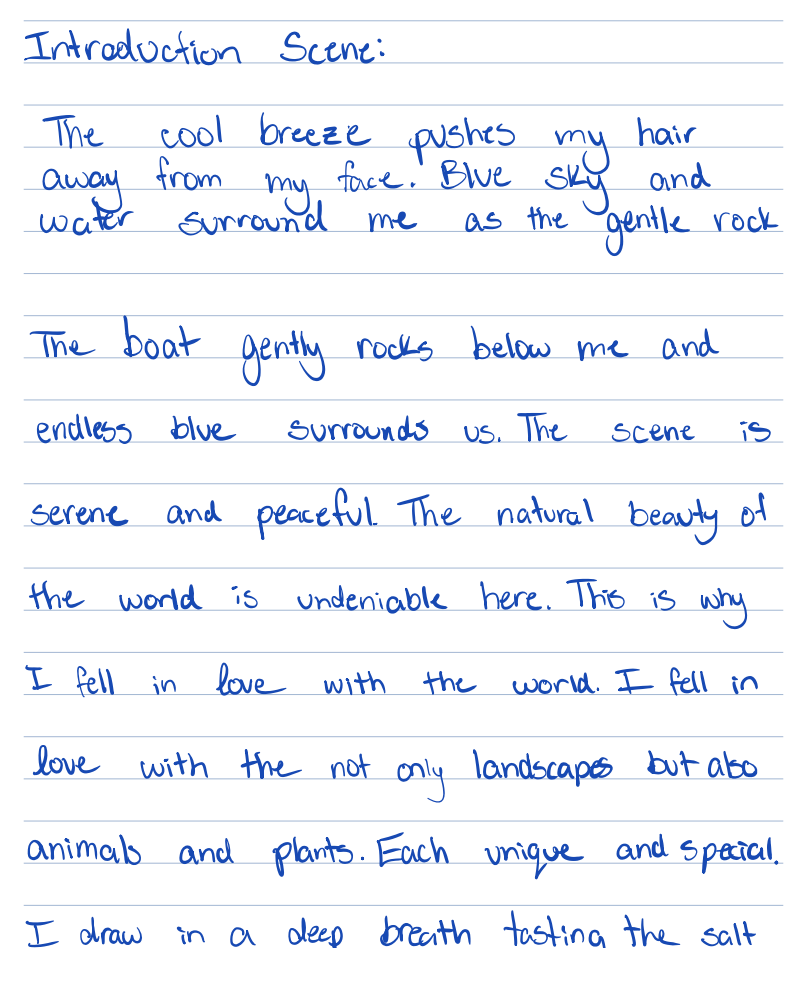 Introduction Scene:
The cool breeze pushes my hair
away from my face. Blue sky and
water surround me as the gentle rock
The boat gently rocks below me and
endless blue surrounds us. The scene is
serene and peaceful. The natural beauty of
the world is undeniable here. This is why
I fell in love with the world. I fell in
love with the not only landscapes but also
animals and plants. Each unique and special.
I draw in a deep breath tasting the salt